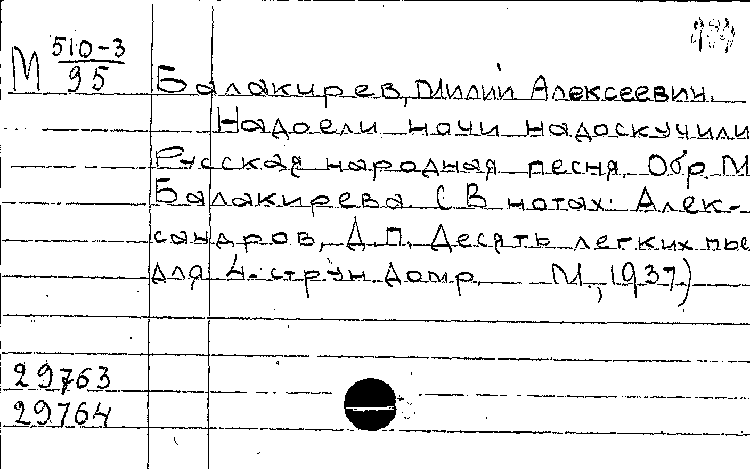 М 510-3
95
Балакирев, Милий Алексеевич.
Надоели ночи надоскучили
Русская народная песня. Обр. М
Балакирева. (В нотах: Алек-
сандров, А.П. Десять легких пье
для 4-струн домр. М., 1937.)
29763
29764